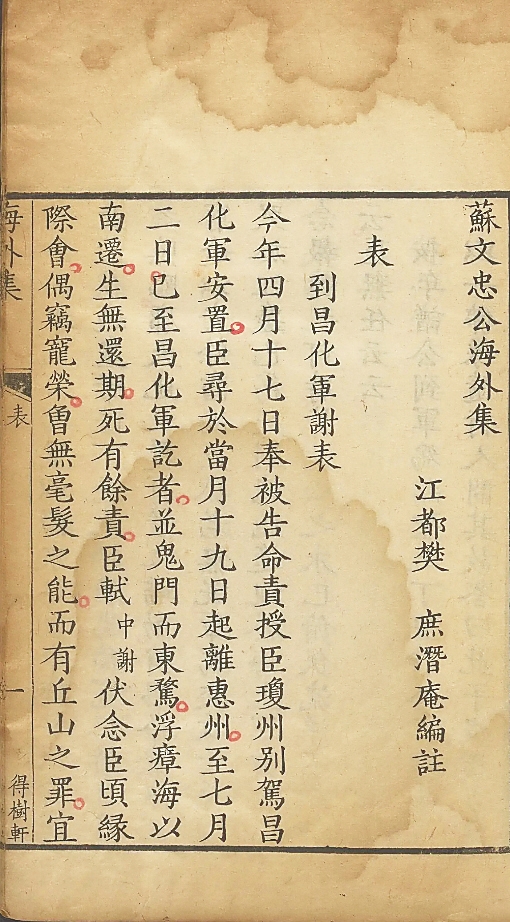 蘇文忠公海外集
江都樊 庶潛庵編註
表
到昌化軍謝表
今年四月十七日奉被告命責授臣瓊州別駕昌
化軍安置臣尋於當月十九日起離惠州至七月
二日已至昌化軍訖者並鬼門而東騖浮瘴海以
南遷生無還期死有餘責臣軾中謝伏念臣頃緣
際會偶竊寵榮曾無毫髮之能而有丘山之罪宜
海外集
表
一
得樹軒